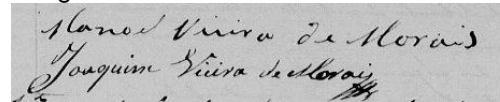 Manoel Vieira de Morais
Joaquim Vieira de Morais